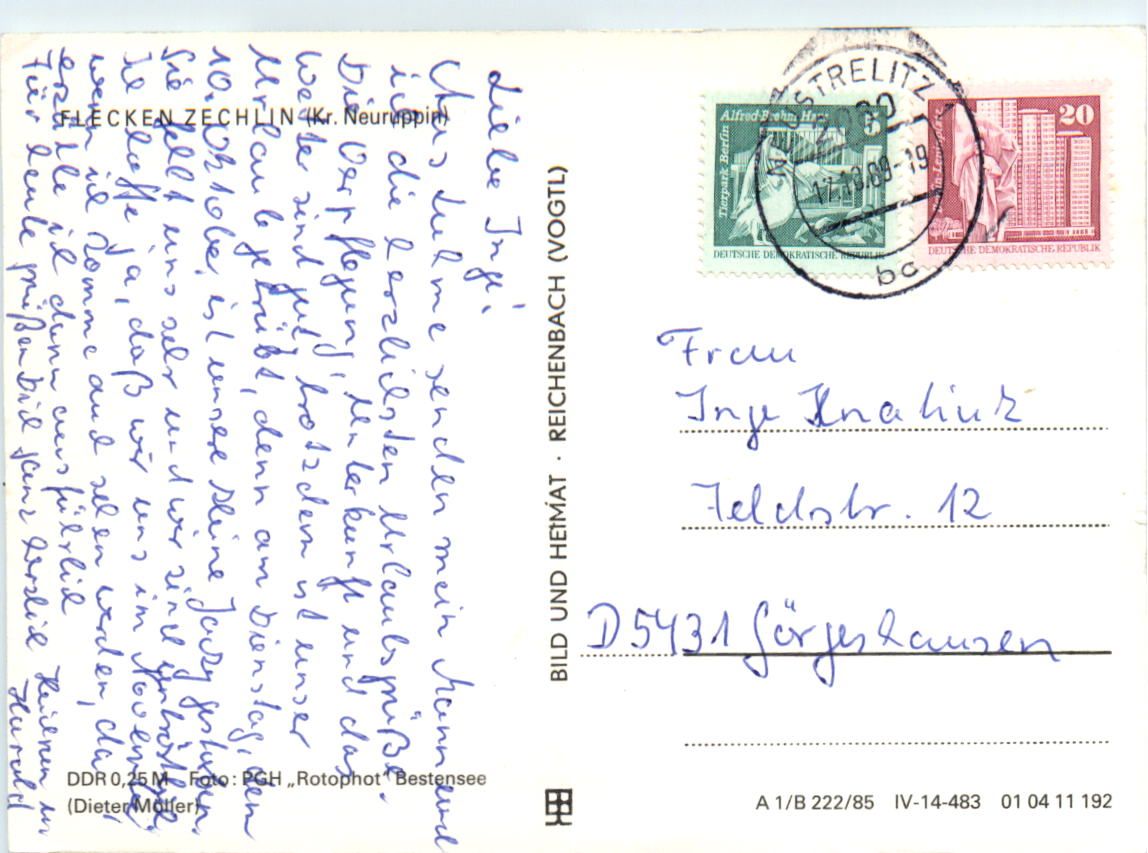 FLECKEN ZECHLIN (Kr. Neuruppin)
Liebe Inge!
Aus Luhme senden mein Mann und
ich die herzlichsten Urlaubsgrüße.
Die Verpflegung, Unterkunft und das
Wetter sind gut, trotzdem ist unser
Urlaub getrübt, denn am Dienstag, dem
10. Oktober, ist unsere kleine gestorben.
Sie fehlt uns sehr und wir sind
Ich hoffe ja, daß wir uns im November,
wenn ich komme auch sehen werden, da
erzähle ich dann ausführlich
Für heute grüßen Dich ganz herzlich
Harald
DDR 0,25 M Foto: PGH „Rotophot" Bestensee
(Dieter Möller)
BILD UND HEIMAT · REICHENBACH (VOGTL)
Alfred-Brehm-Haus
Tierpark Berlin
5
DEUTSCHE DEMOKRATISCHE REPUBLIK
20
DEUTSCHE DEMOKRATISCHE REPUBLIK
NEUSTRELITZ
2080
17.10.89-19
bc
Frau
Inge
Feldstr. 12
D 5431 Görgeshausen
A 1/B 222/85 IV-14-483 01 04 11 192